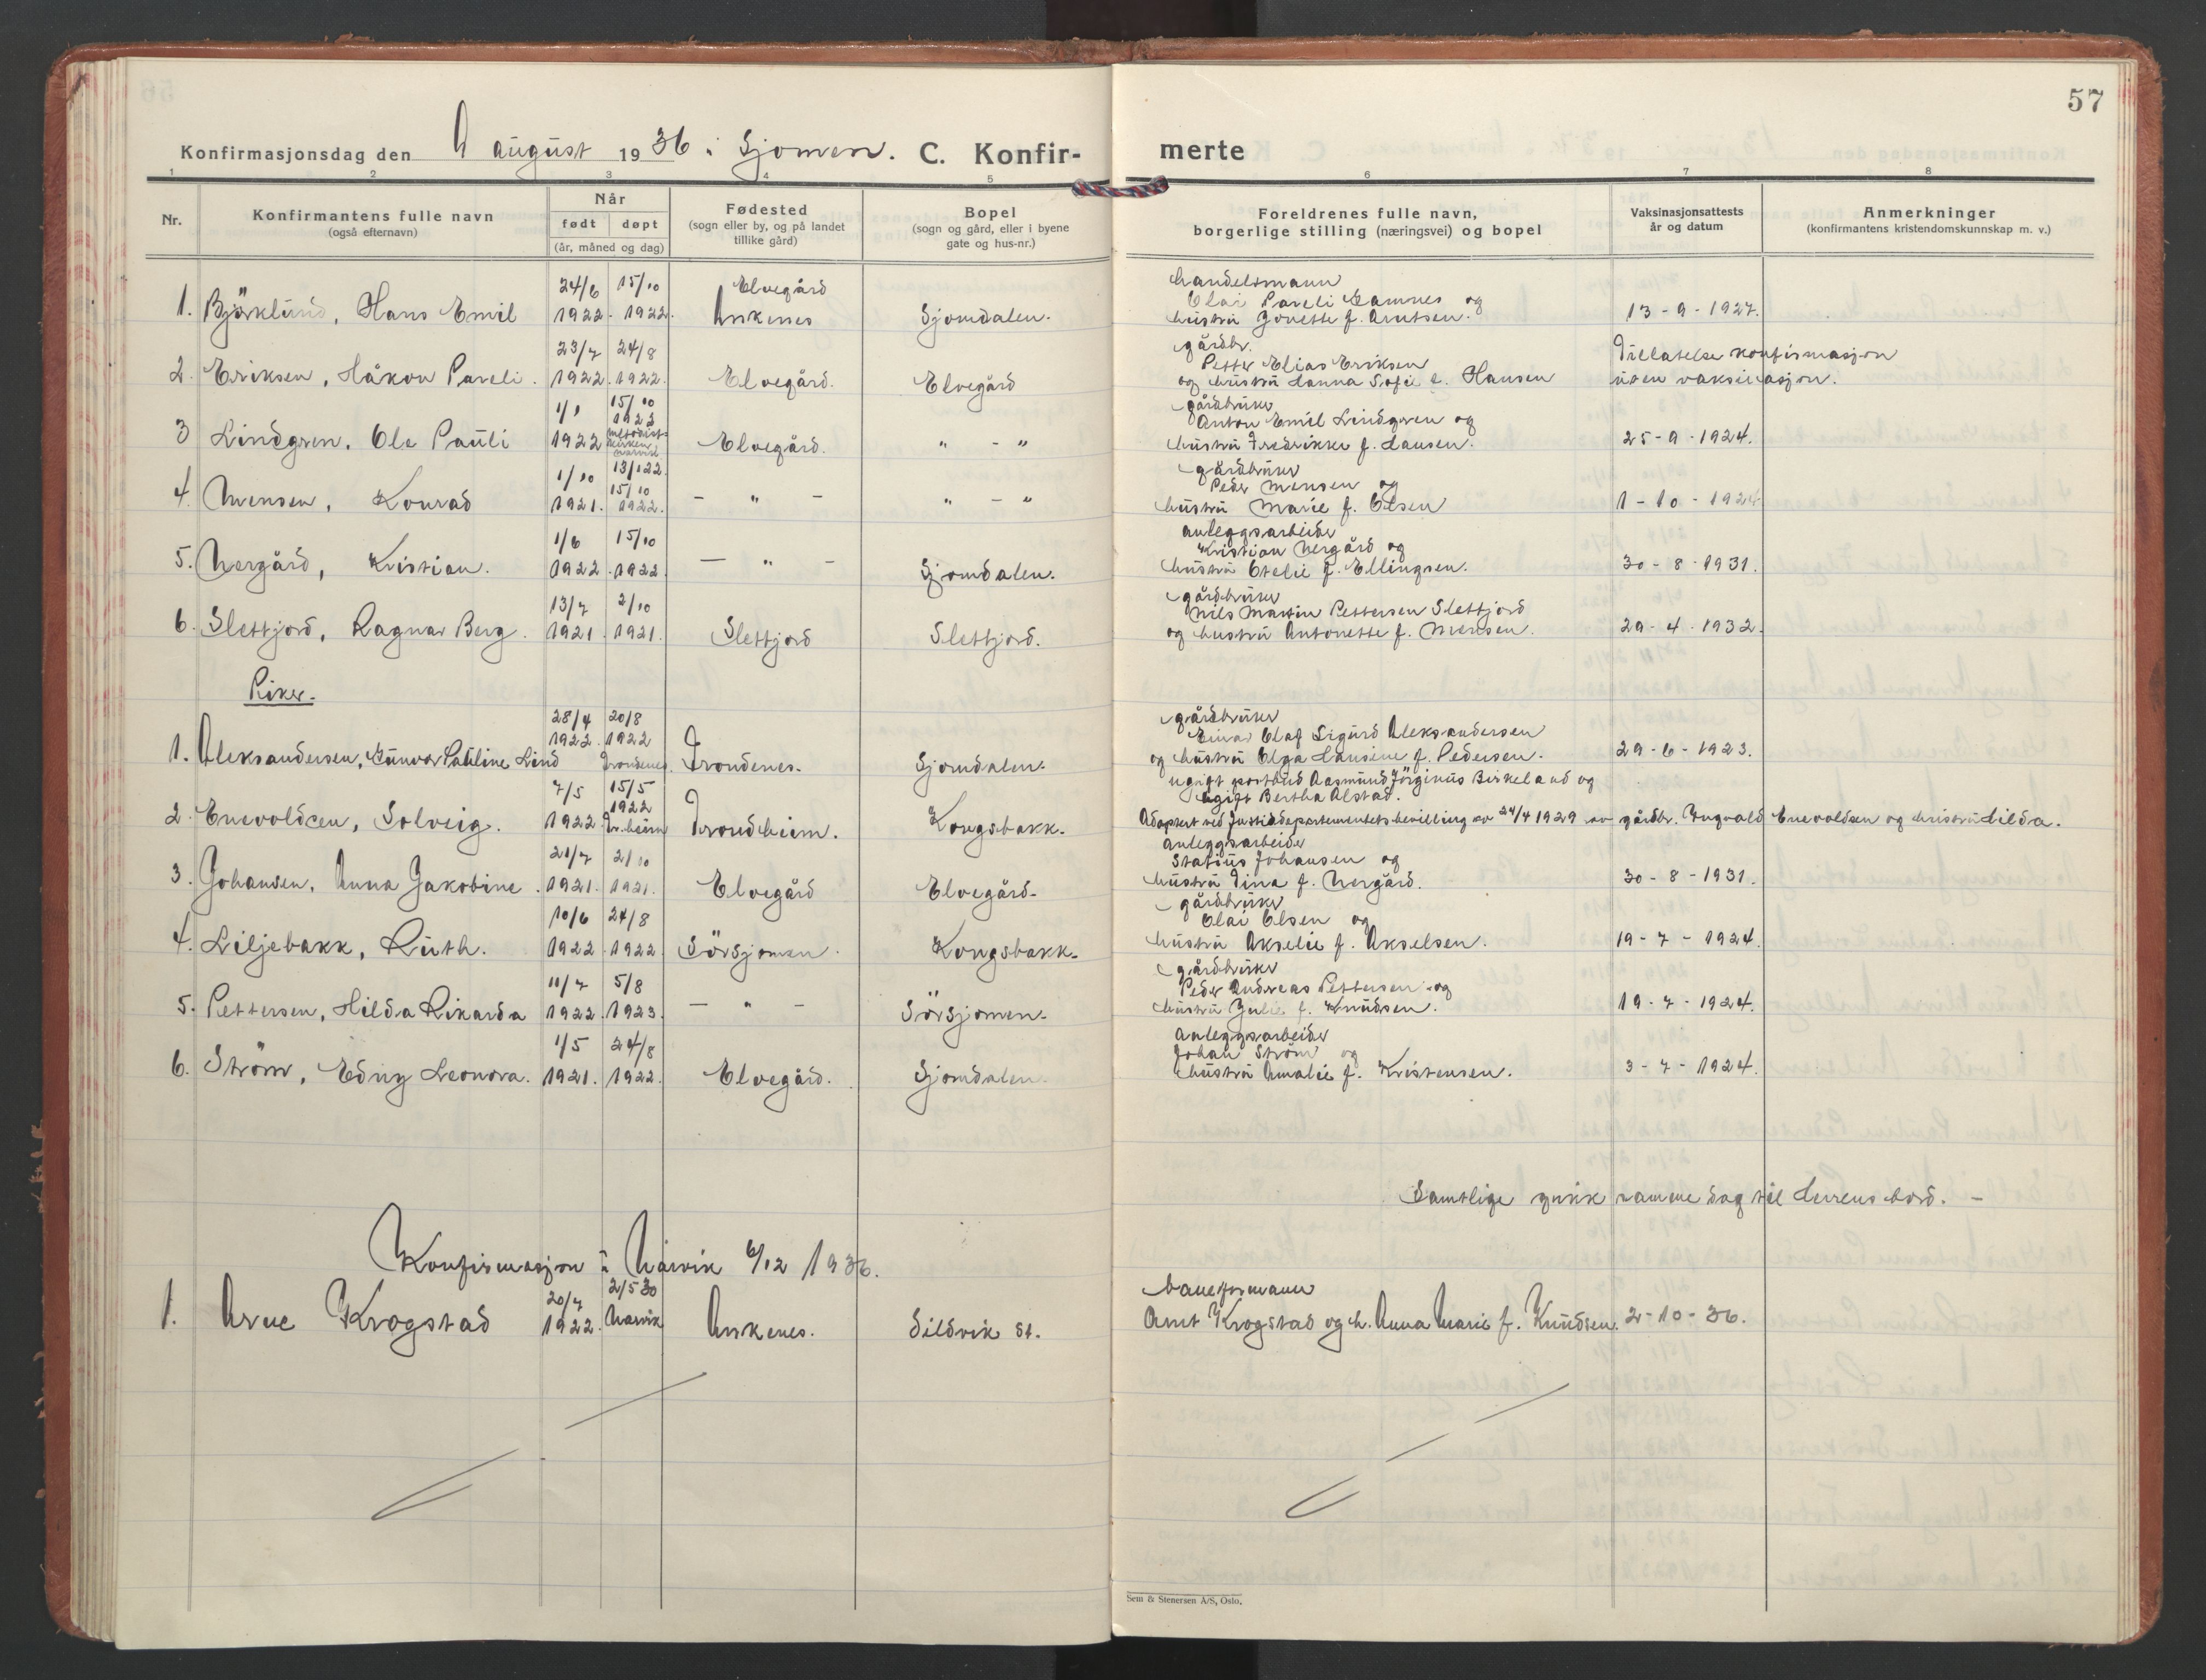 57
Konfirmasjonsdag den 9 august 1936 i Sjomen. C. Konfir-
merte
1 2 3 4 5 6 7 8
Nr.
Konfirmantens fulle navn
(også efternavn)
Når
født døpt
(år, måned og dag)
Fødested
(sogn eller by, og på landet
tillike gård)
Bopel
(sogn og gård, eller i byene
gate og hus-nr.)
Foreldrenes fulle navn,
borgerlige stilling (næringsvei) og bopel
Vaksinasjonsattests
år og datum
Anmerkninger
(konfirmantens kristendomskunnskap m. v.)
24/6 15/10 Elvegård handelsmann
Olai Pareli Hamnes og
1. Björklund, Hans Emil 1922. 1922. Ankenes Sjomdalen. hustru Jonette f. Arntsen. 13-9-1927.
23/7 24/8 gårdbr.
Petter Elias Eriksen Tillatelse konfirmasjon
2. Eriksen, Håkon Pareli. 1922. 1922. Elvegård. Elvegård og hustru Hanna Sofie f. Hansen uten vaksinasjon.
1/1 15/10 gårdbruker
1923 Anton Emil Lindgren og
3 Lindgren, Ole Pauli 1922 metodist-kirken Narvik Elvegård. " - " hustru Fredrikke f. Hansen. 25-9-1924.
1/10 13/1 22. gårdbruker
15/10 Peder Mensen og
4. Mensen, Konrad 1921. 1922. - " - " - " hustru Marie f. Olsen 1-10-1924
1/6 15/10 anleggsarbeider
Kristian Nergård og
5. Nergård, Kristian. 1922. 1922. - " - Sjomdalen. hustru Otelie f. Ellingsen. 30-8-1931.
13/7 2/10 gårdbruker
Nils Martin Pettersen Slettjord
6. Slettjord, Ragnar Berg. 1921. 1921. Slettjord Slettjord. og hustru Antonette f. Mensen. 29-4-1932.
Piker.
28/4 20/8 gårdbruker
1922. 1922 Einar Olaf Sigurd Aleksandersen
1. Aleksandersen, Gunvor Pauline Lind Trondenes. Trondenes. Sjomdalen. og hustru Olga Hansine f. Pedersen. 29-6-1923.
7/5 15/5 ugift postbud Aasmund Jörginus Birkeland og
1922 ugift Bertha Alstad.
2. Enevoldcen, Solveig. 1922 Tr.heim Trondheim. Kongsbakk. Adoptert ved Justisdepartementets bevilling av 24/4 1929 av gårdbr. Ingvald Enevoldsen og hustru Hilda.
21/7 2/10 anleggsarbeider
Statius Johansen og
3. Johansen, Anna Jakobine. 1921. 1921. Elvegård Elvegård. hustru Tina f. Nergård. 30-8-1931.
10/6 24/8 gårdbruker
Olai Olsen og
4. Liljebakk, Ruth. 1922. 1922. Sörsjomen. Kongsbakk. hustru Akselie f. Akselsen. 19-7-1924.
11/7 5/8 gårdbruker
Peder Andreas Pettersen og
5. Pettersen, Hilda Rikarda 1922. 1923. - " - Sörsjomen. hustru Julie f. Knudsen. 19-7-1924.
1/5 24/8 anleggsarbeider
Johan Ström og
6. Ström, Edny Leonora. 1921. 1922. Elvegård. Sjomdalen. hustru Amalie f. Kristensen. 3-7-1924.
Samtlige gikk samme dag til Herrens bord. -
Konfirmasjon i Narvik 6/12 1936.
20/7 2/5 30 baneformann
1. Arne Krogstad 1922. Narvik Ankenes. Sildvik st. Arnt Krogstad og h. Anna Marie f. Knudsen. 2-10-36.
Sem & Stenersen A/S, Oslo.